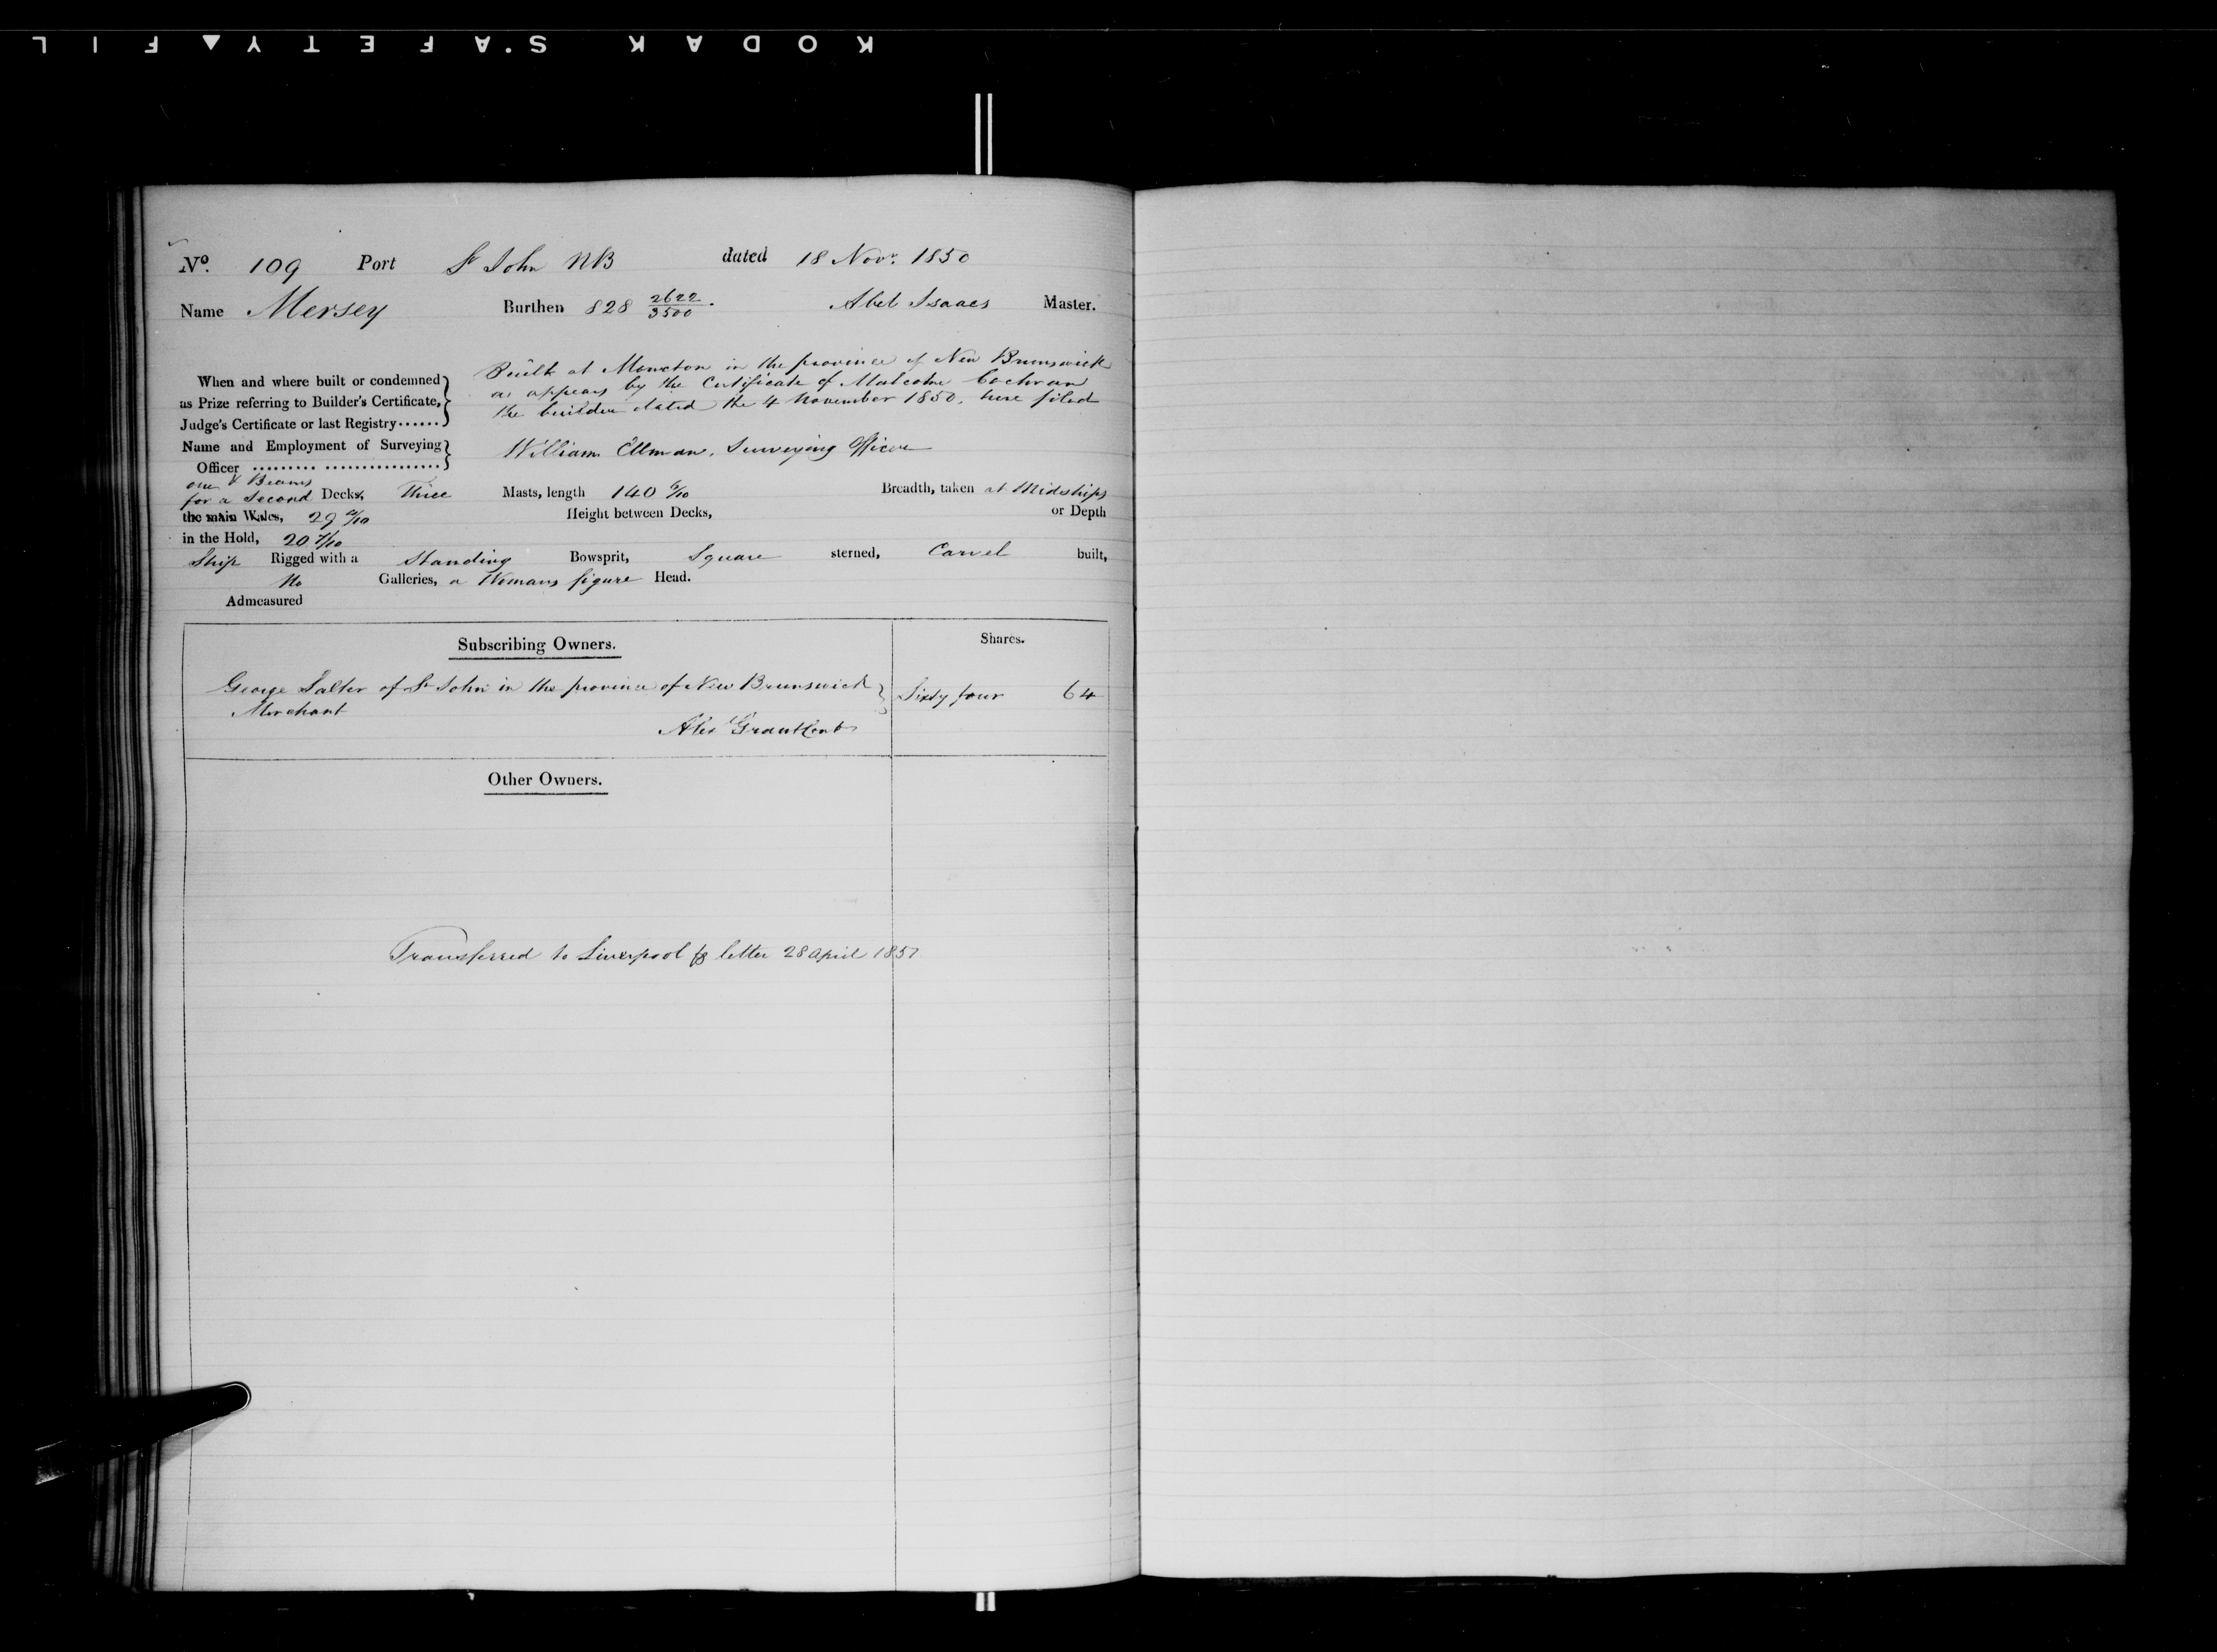 KODAK S.AFETY▲FIL
No. 109 Port St John NB dated 18 Novr. 1850
Name Mersey Burthen 828 2622/3500. Abel Isaacs Master.
Built at Moncton in the province of New Brunswick
When and where built or condemned as appears by the Certificate of Malcolm Cochran
as Prize referring to Builder's Certificate, the builder dated the 4 November 1850. here filed
Judge's Certificate or last Registry......
Name and Employment of Surveying William Ellman, Surveying Officer
Officer ......... ................
one & Beams
for a Second Decks, Three Masts, length 140 6/10 Breadth, taken at Midships
the main Wales, 29 Height between Decks, or Depth
in the Hold, 20 7/10
Ship Rigged with a Standing Bowsprit, Square sterned, Carvel built,
No Galleries, a Womans figure Head.
Admeasured
Subscribing Owners. Shares.
George Salter of St John in the province of New Brunswick Sixty four 64
Merchant
Alex Grant
Other Owners.
Transferred to Liverpool letter 28 April 1851